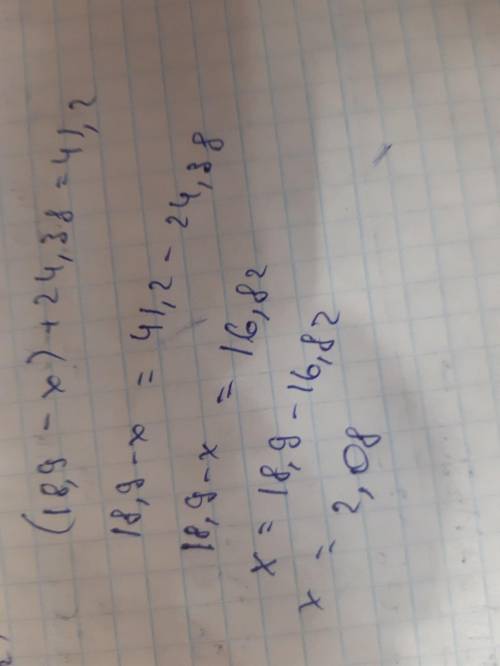 (18,9 - x) + 24,38 = 41,2
18,9 - x = 41,2 - 24,38
18,9 - x = 16,82
x = 18,9 - 16,82
x = 2,08